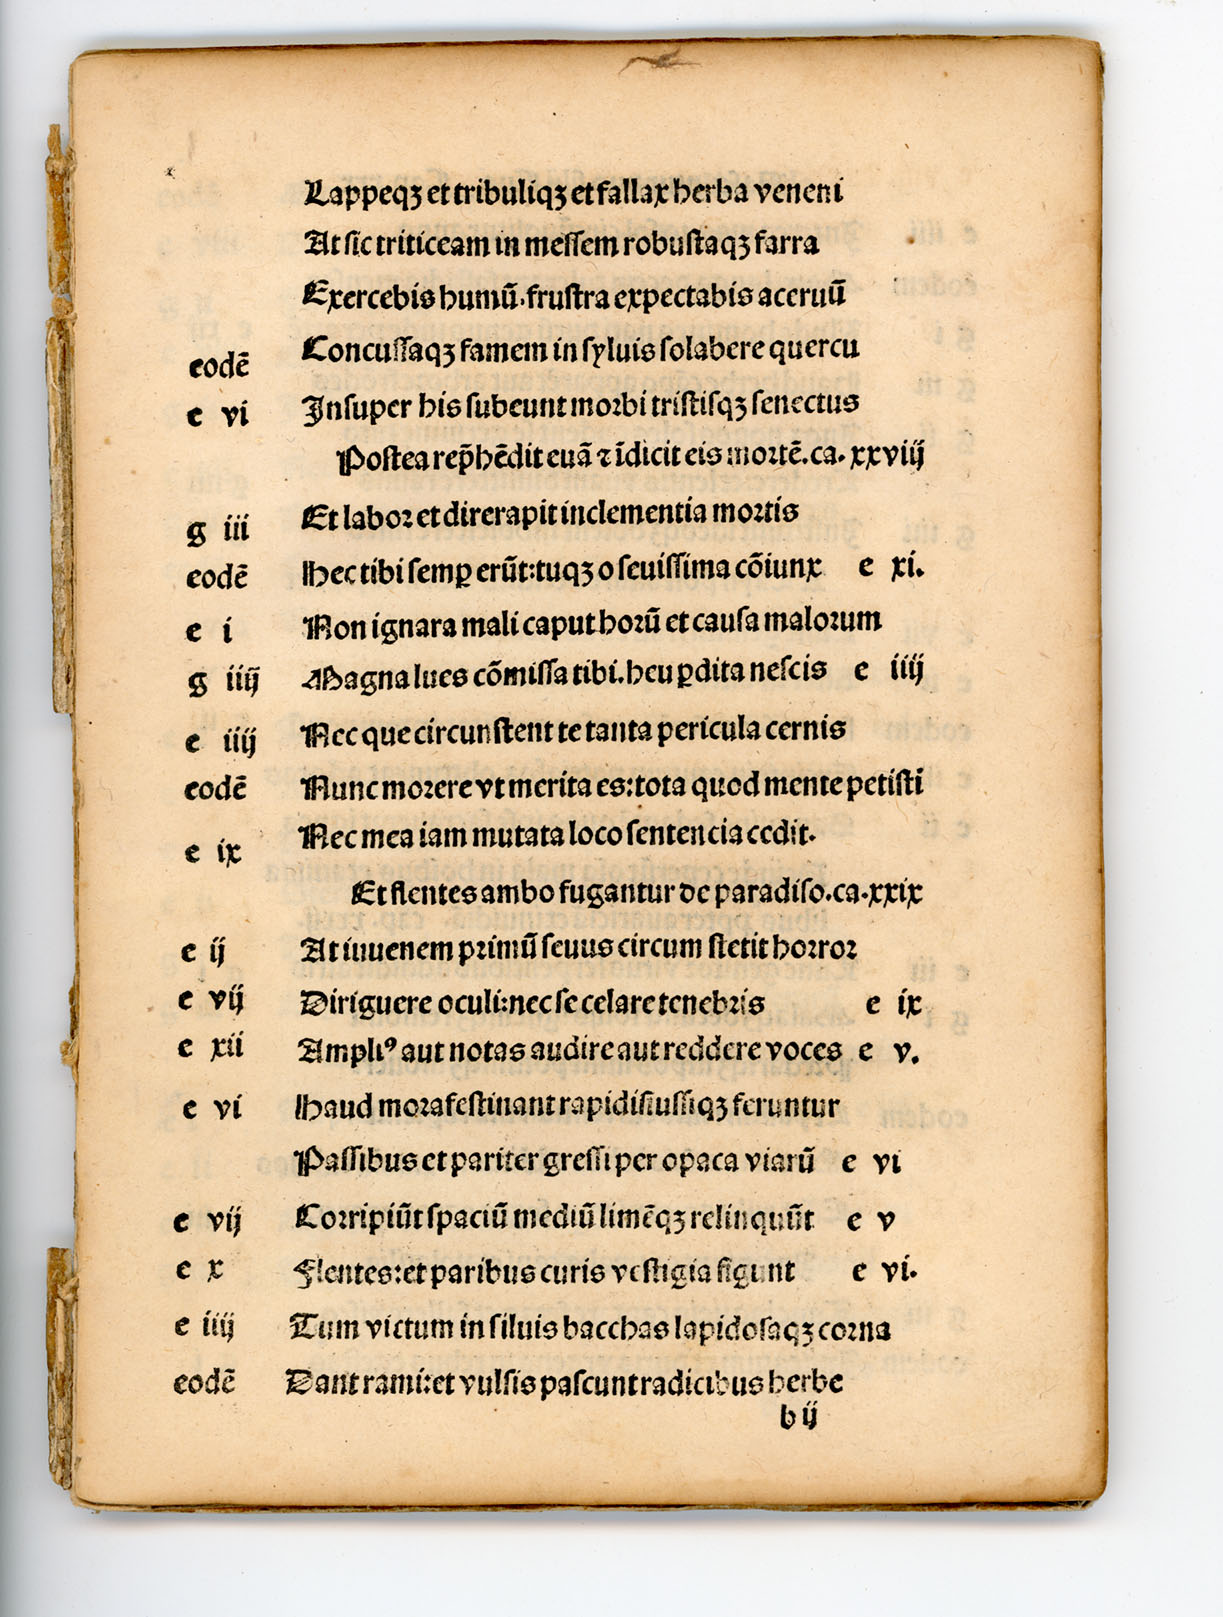 Lappeqꝫ et tribuliqꝫ et fallax herba veneni
At sic triticeam in meſſem robuſtaqꝫ farra
Exercebis humū. fruſtra expectabis aceruū
eodē Concuſſaqꝫ famem in ſyluis ſolabere quercu
e vi Inſuper his ſubeunt moꝛbi triſtiſqꝫ ſenectus
Poſtea rep̄hēdit euā ⁊ īdicit eis moꝛtē. ca. xxviij
g iii Et laboꝛ et dire rapit inclementia moꝛtis
eodē Hec tibi ſemꝑ erūt: tuqꝫ o ſeuiſſima cōiunx e xi.
e i Non ignara mali caput hoꝛū et cauſa maloꝛum
g iiij Magna lues cōmiſſa tibi. heu ꝑdita neſcis e iiij
e iiij Nec que circunſtent te tanta pericula cernis
eodē Nunc moꝛere vt merita es: tota quod mente petiſti
e ix Nec mea iam mutata loco ſentencia cedit.
Et flentes ambo fugantur de paradiſo. ca. xxix
e ij At iuuenem pꝛimū ſeuus circum ſtetit hoꝛroꝛ
e vij Diriguere oculi: nec ſe celare tenebꝛis e ix
e xii Ampliꝰ aut notas audire aut reddere voces e v.
e vi Haud moꝛa feſtinant rapidiſiuſſiqꝫ feruntur
Paſſibus et pariter greſſi per opaca viarū e vi
e vij Coꝛripiūt ſpaciū mediū limēqꝫ relinquūt e v
e x Flentes: et paribus curis veſtigia figunt e vi.
e iiij Tum victum in ſiluis bacchas lapidoſaqꝫ coꝛna
eodē Dant rami: et vulſis paſcunt radicibus herbe
b ij